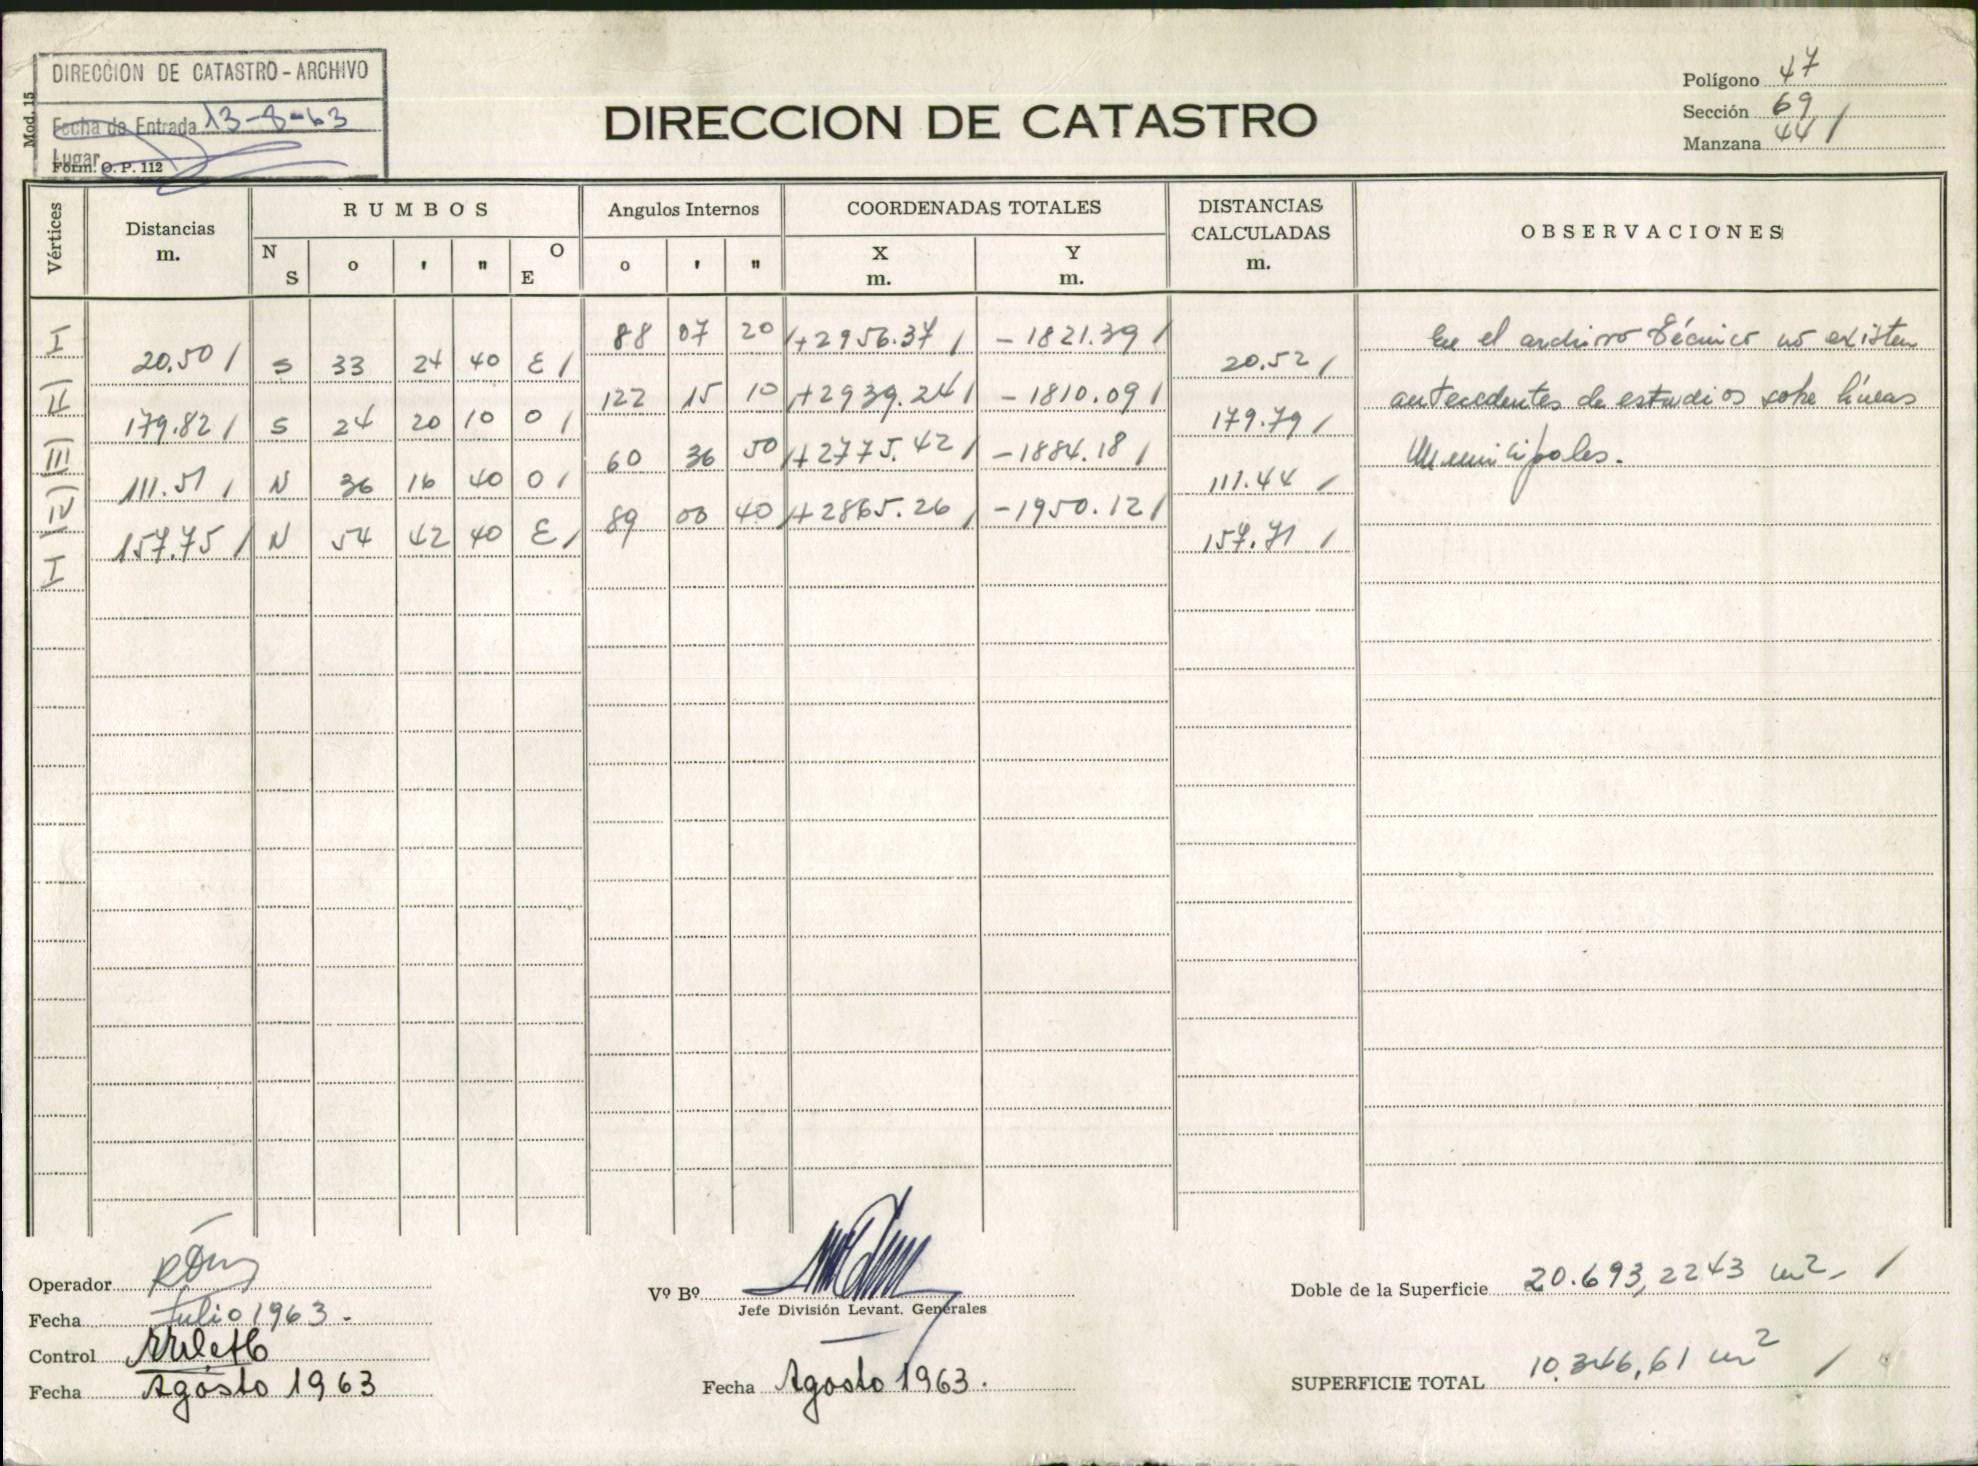 Mod. 15
DIRECCION DE CATASTRO - ARCHIVO
Fecha de Entrada 13-8-63
Lugar
Form. O. P. 112
DIRECCION DE CATASTRO
Polígono 47
Sección 69
Manzana 44 /
Vértices
Distancias m.
RUMBOS
N S o ' " O E
Angulos Internos
o ' "
COORDENADAS TOTALES
X m. Y m.
DISTANCIAS CALCULADAS m.
OBSERVACIONES
I 88 07 20 / +2956.37 / -1821.39 /
20.50 / S 33 24 40 E / 20.52 /
II 122 15 10 / +2939.24 / -1810.09 /
179.82 / S 24 20 10 O / 179.79 /
III 60 36 50 / +2775.42 / -1884.18 /
111.51 / N 36 16 40 O / 111.44 /
IV 89 00 40 / +2865.26 / -1950.12 /
157.75 / N 54 42 40 E / 157.71 /
I
En el archivo Técnico no existen
antecedentes de estudios sobre líneas
Municipales.
Operador
Fecha Julio 1963.-
Control
Fecha Agosto 1963
Vº Bº
Jefe División Levant. Generales
Fecha Agosto 1963.
Doble de la Superficie 20.693,2243 m2. /
SUPERFICIE TOTAL 10.346,61 m2 /